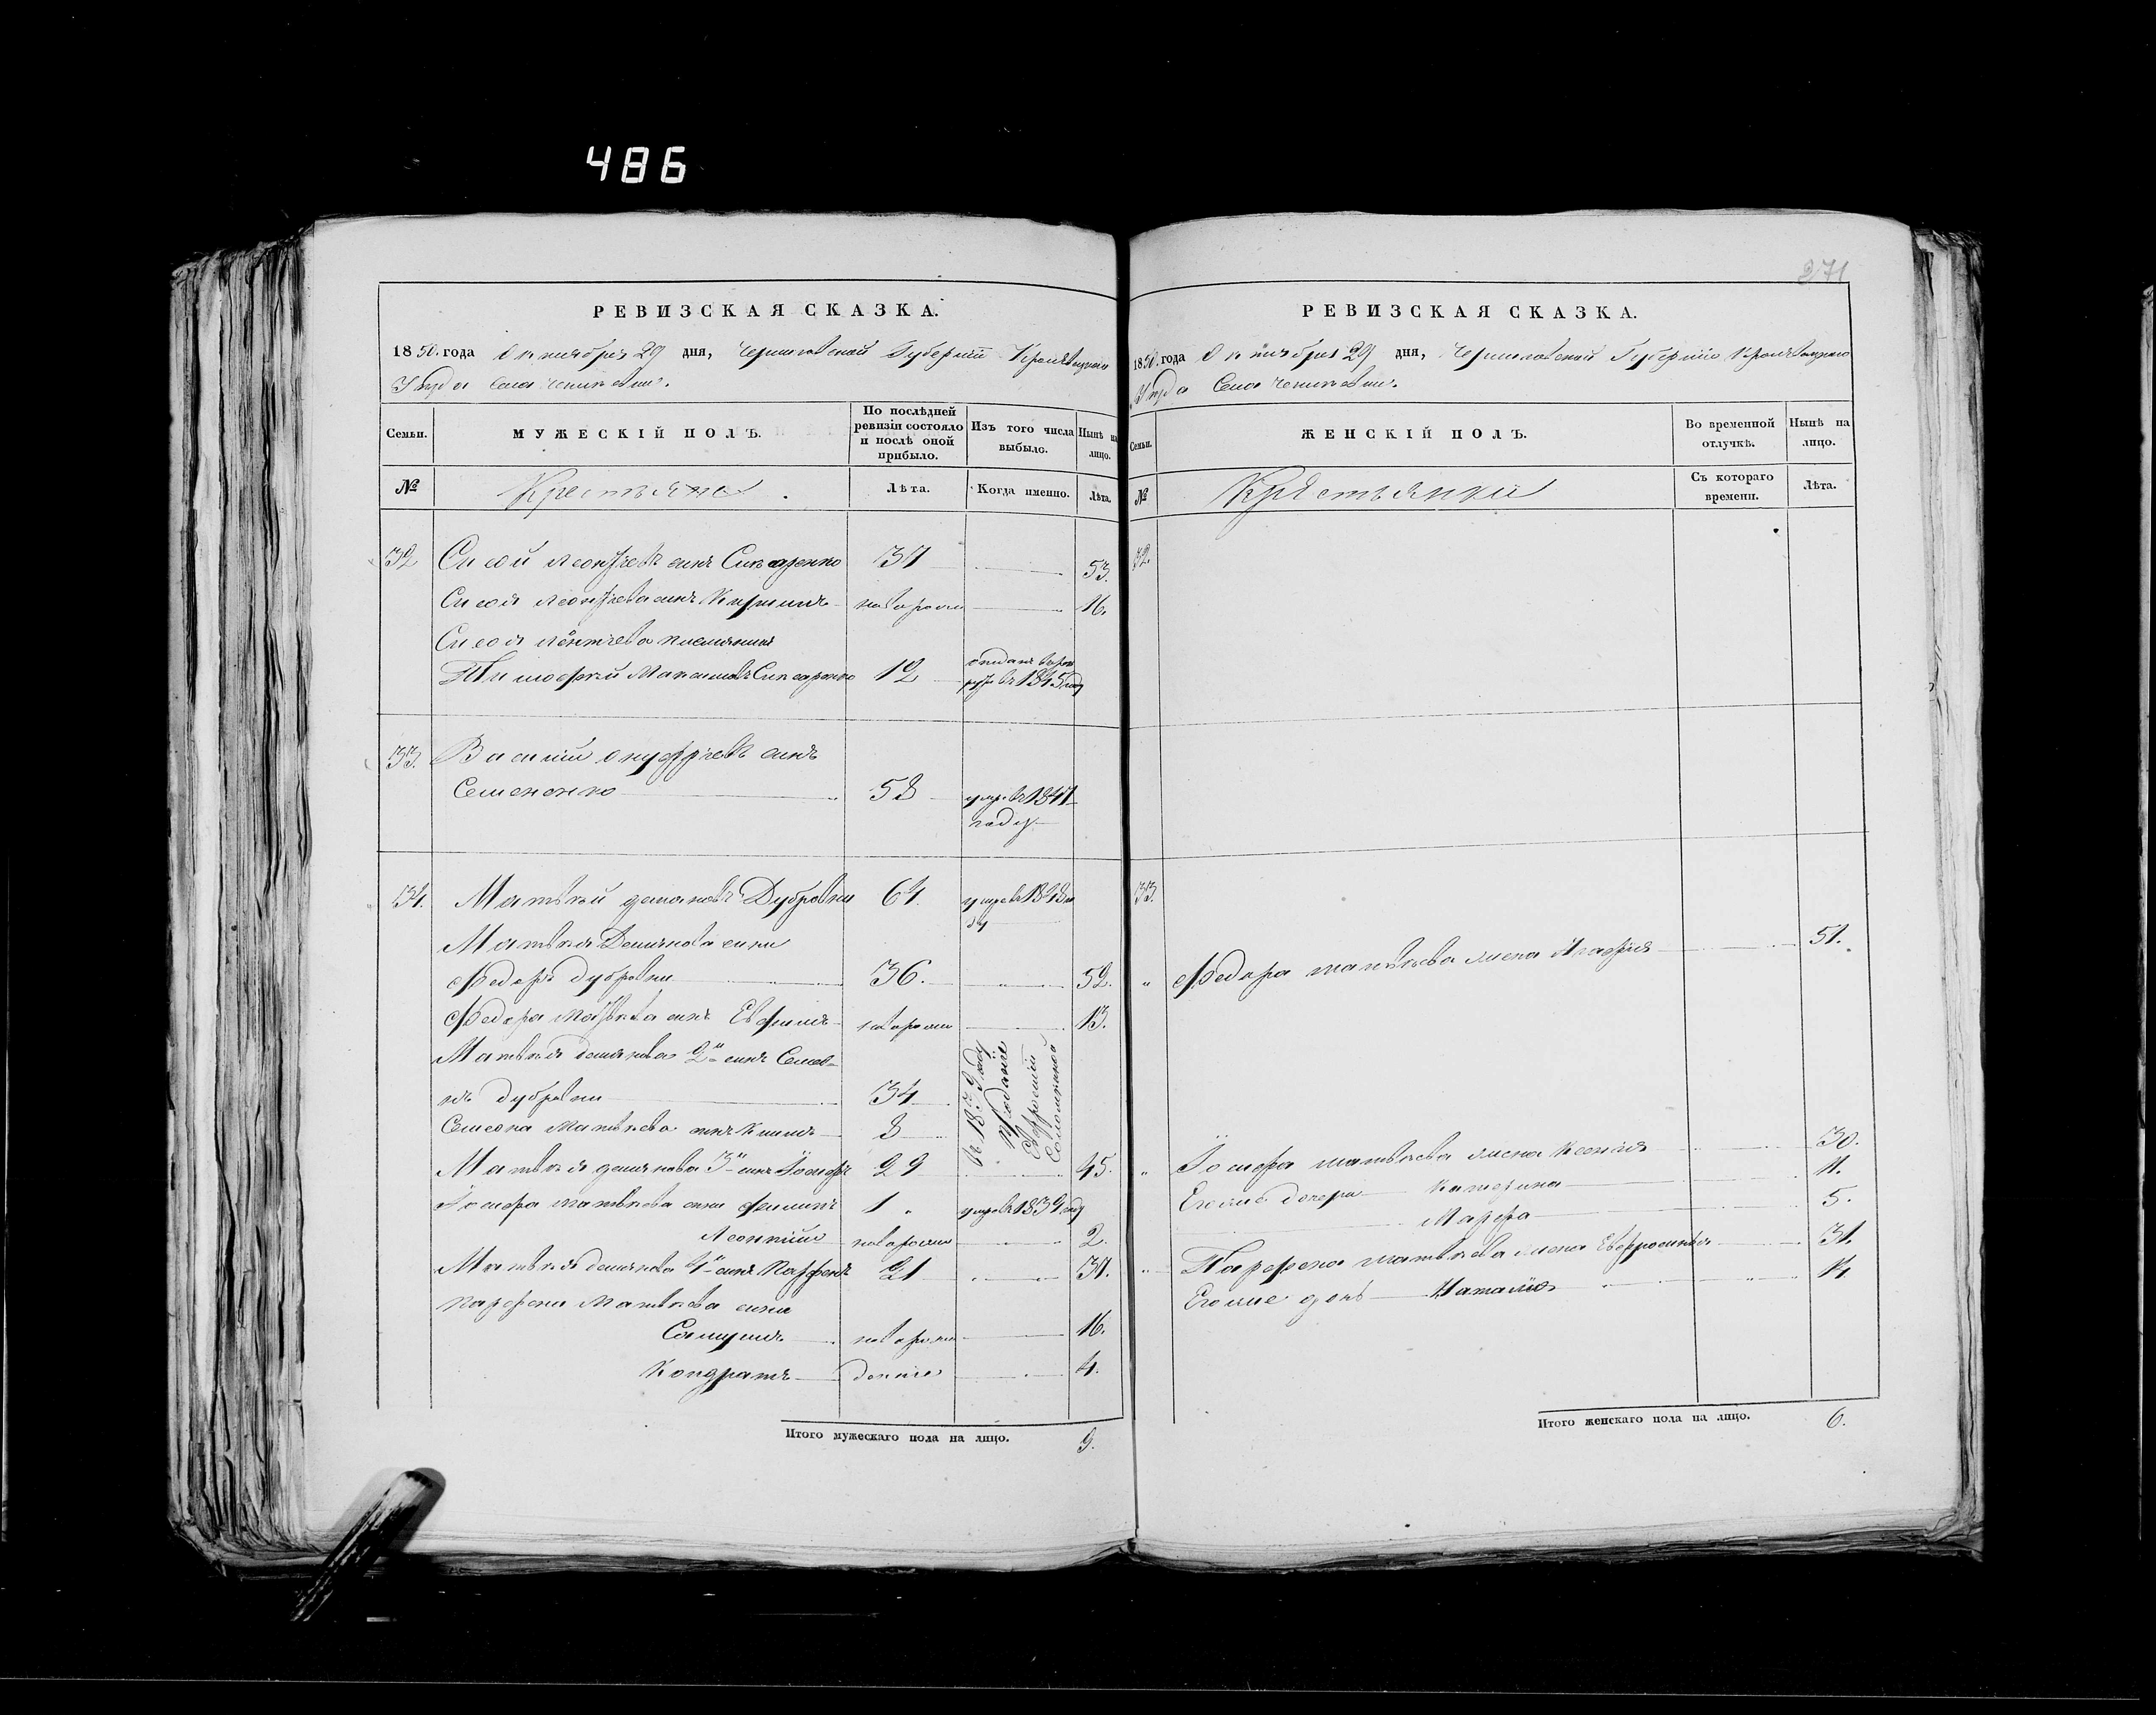 486
271
РЕВИЗСКАЯ СКАЗКА.
1850. года Октября 29 дня, Черниговской Губерніи Кролевецкаго
Уезда Села
Семьи.
МУЖЕСКІЙ ПОЛЪ.
По послѣдней ревизіи состояло и послѣ оной прибыло.
Изъ того числа выбыло.
Нынѣ на лицо.
№
Крестьяне.
Лѣта.
Когда именно.
Лѣта.
32 Сисой Леонтьевъ сынъ 37 53.
Сисоя Леонтьева сынъ новорожд 16.
Сисоя Леонтьева племянникъ
Тимофей Максимовъ 12 отданъ в рек
руты въ 1845 году
33. Василий Онуфріевъ сынъ
Семененко 58 умре въ 1841
году
34. Матвѣй Демяновъ Дубровка 64. умре въ 1848 го
ду
Матвѣя Демянова сыны
Федоръ Дубровка 36. 52.
Федора Матвѣева сынъ Евфимъ новорожд 13.
Матвѣя Демянова 2й сынъ Семе
нъ Дубровка 34
Семена Матвѣева сынъ 8
Матвѣя Демянова 3й сынъ Іосифъ 29 45.
Іосифа Матвѣева сыны Филипъ 1 умре въ 1839 году
Леонтій новорожд 2.
Матвѣя Демянова 4й сынъ Парфенъ 21 37.
Парфена Матвѣева сыны
Самуилъ новорожд 16.
Кондратъ тоже 4.
Итого мужескаго пола на лицо. 9.
РЕВИЗСКАЯ СКАЗКА.
1850. года Октября 29 дня, Черниговской Губерніи Кролевецкаго
Уезда Села
Семьи.
ЖЕНСКІЙ ПОЛЪ.
Во временной отлучкѣ.
Нынѣ на лицо.
№
Крестьянки
Съ котораго времени.
Лѣта.
32.
33.
Федора Матвѣева жена Агафія 51.
Іосифа Матвѣева жена Ксенія 30.
Его же дочери Катерина 11.
Марфа 5.
Парфена Матвѣева жена Евфросинія 31.
Его же дочь Наталія 14.
Итого женскаго пола на лицо. 6.